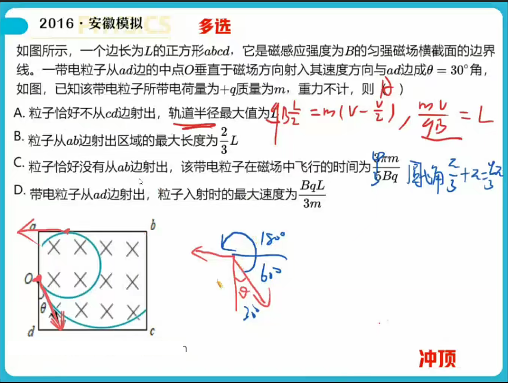 2016·安徽模拟
多选
如图所示，一个边长为L的正方形abcd，它是磁感应强度为B的匀强磁场横截面的边界
线。一带电粒子从ad边的中点O垂直于磁场方向射入其速度方向与ad边成θ＝30°角，
如图，已知该带电粒子所带电荷量为+q质量为m，重力不计，则（ A ）
A. 粒子恰好不从cd边射出，轨道半径最大值为L
qB L/2 = m(v - v/2), mv/qB = L
B. 粒子从ab边射出区域的最大长度为2/3 L
C. 粒子恰好没有从ab边射出，该带电粒子在磁场中飞行的时间为 πm/Bq
圆心角 π/3 + π = 4π/3
D. 带电粒子从ad边射出，粒子入射时的最大速度为BqL/3m
a b
O
θ
d c
180°
60°
θ
30°
冲顶